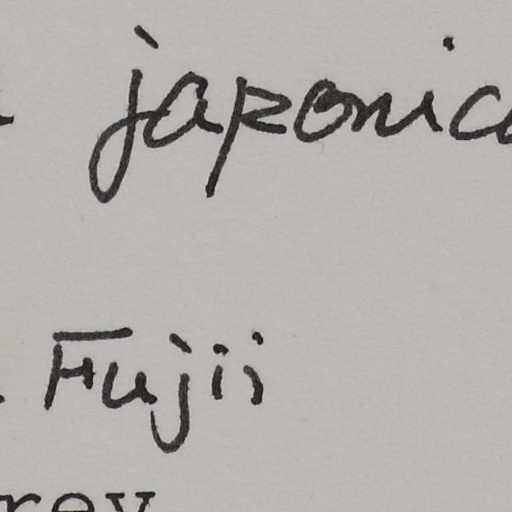 japonica
Fujii
rev